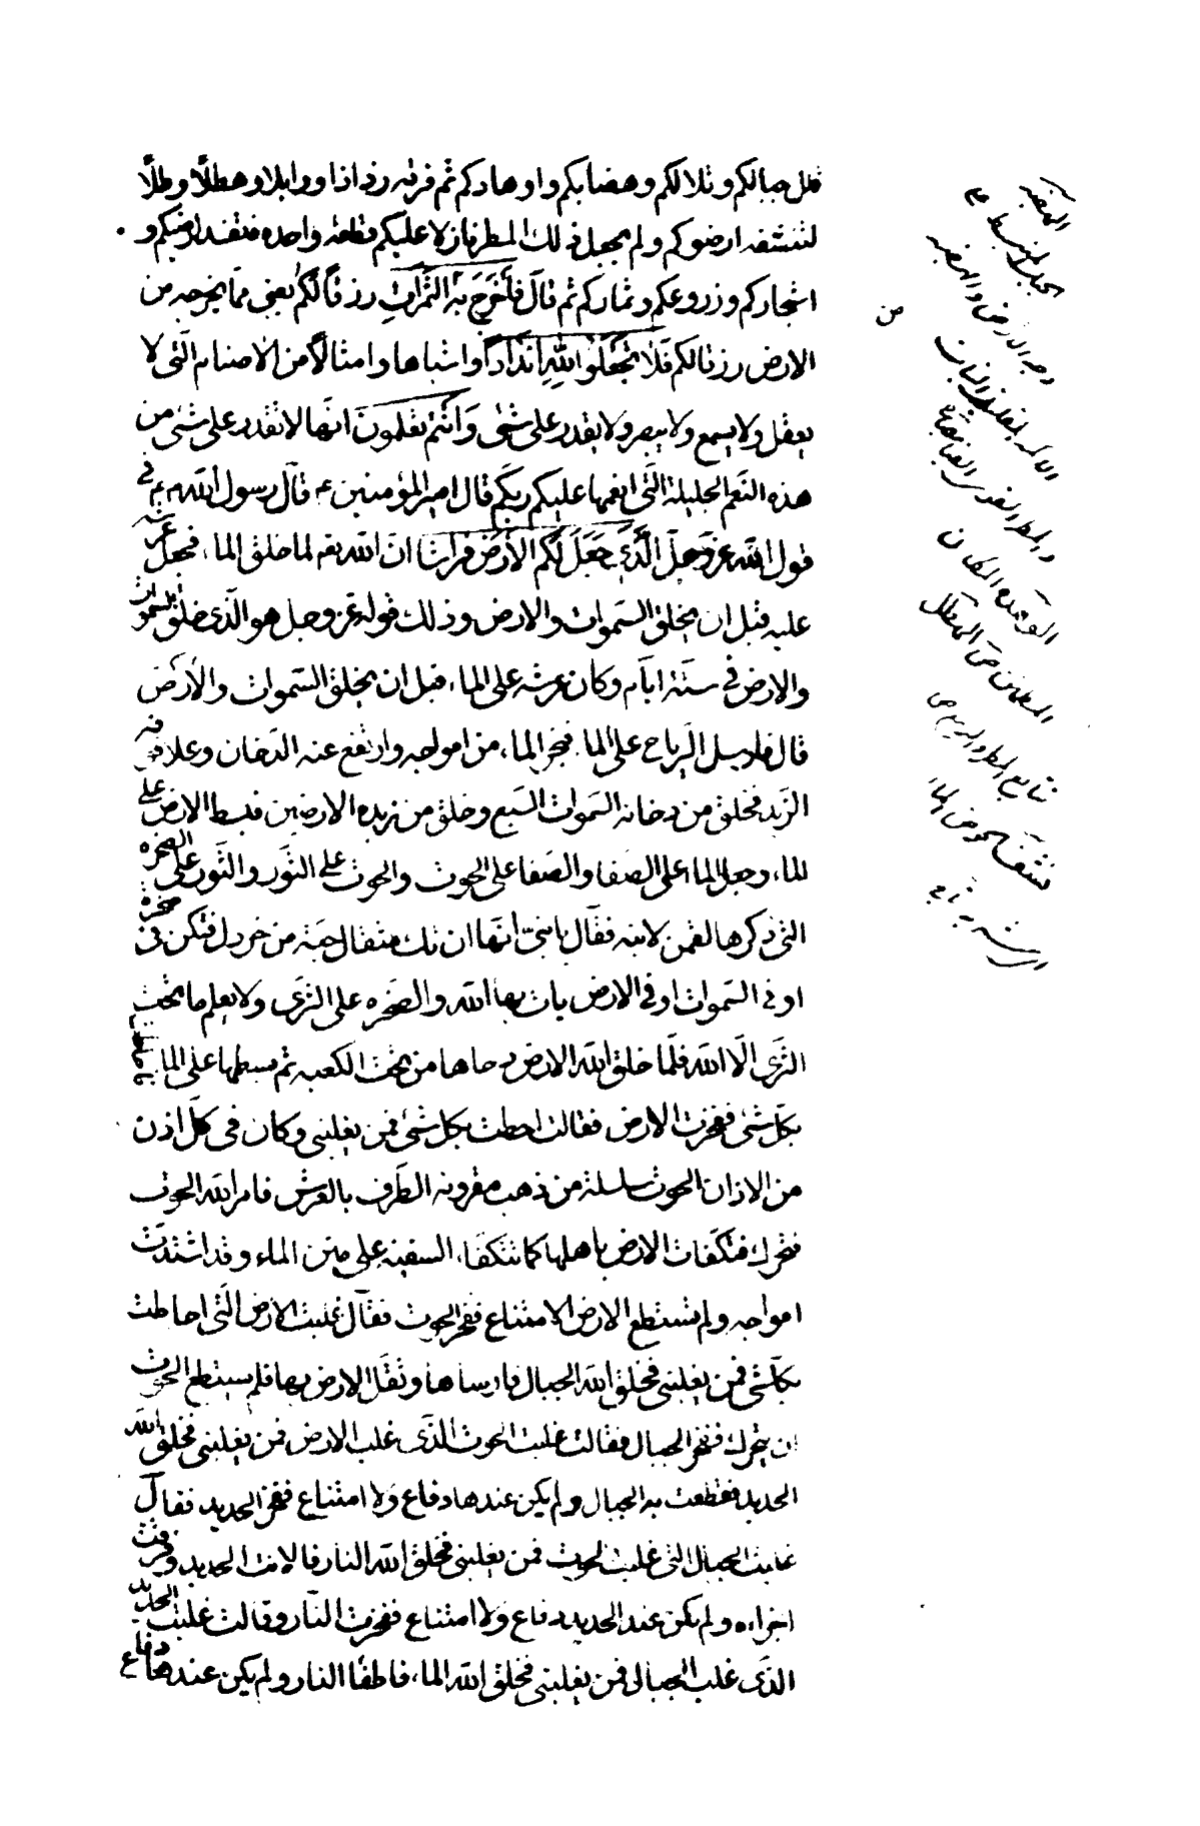 قلل جبالكم وتلالكم وهضابكم واوهادكم ثم فرقه رذاذا ووابلا وهطلًا وطلًّا
لتنشفه ارضوكم ولم يجعل ذلك المطر نازلا عليكم قطعة واحده فتفسد ارضيكم و
اشجاركم وزروعكم وثماركم ثم قال فَأَخْرَجَ بِهِ الثَّمَرَاتِ رِزْقًا لَكُمْ يعنى ممّا يخرجه من
الارض رزقا لكم فَلَا تَجْعَلُوا لِلّٰهِ اَنْدَادًا واشباها وامثالًا من الاصنام الّتى لا
يعقل ولا يسمع ولا يبصر ولا يقدر على شئ وَاَنْتُمْ تَعْلَمُونَ انّها لا تقدر على شئ من
هذه النّعم الجليلة الّتى انعمها عليكم ربكم قال امير المؤمنين ع قال رسول اللّه ص فى
قول اللّه عز وجلّ الَّذِي جَعَلَ لَكُمُ الأَرْضَ فِرَاشًا انّ اللّه تعم لما خلق الماء فجعل عرشه
عليه قبل ان يخلق السّموات والارض وذلك قوله عز وجل هو الّذى خلق السموات
والارض فى ستّة ايّام وكان عرشه على الماء قبل ان يخلق السّموات والأرض
قال فارسل الرّياح على الماء فبخر الماء من امواجه وارتفع عنه الدّخان وعلا فوقه
الزّبد فخلق من دخانه السّموات السّبع وخلق من زبده الارضين فبسط الارض على
الماء وجعل الماء على الصّفا والصّفا على الحوت والحوت على الثّور والثّور على الصّخره
التى ذكرها لقمن لابنه فقال يا بنىّ انّها ان تك مثقال حبّة من خردل فتكن فى صخرة
او فى السّموات او فى الارض يات بها اللّه والصّخره على الثّرى ولا يعلم ما تحت
الثّرى الّا اللّه فلمّا خلق اللّه الارض دحاها من تحت الكعبه ثم بسطها على الماء فاحاطت
بكلّ شئ ففخرت الارض فقالت احطت بكل شئ فمن يغلبنى وكان فى كلّ اذن
من الاذان الحوت سلسلة من ذهب مقرونه الطّرف بالعرش فامر اللّه الحوت
فتحرك فتكفّات الارض باهلها كما تتكفّاء السفينه على متن الماء وقد اشتدّت
امواجه ولم تستطع الارض الامتناع ففخر الحوت فقال غلبت الأرض الّتى احاطت
بكلّ شئ فمن يغلبنى فخلق اللّه الجبال فارساها وثقّل الارض بها فلم يستطع الحوت
ان يتحرك ففخرت الجبال فقالت غلبت الحوت الّذى غلب الارض فمن يغلبنى فخلق اللّه
الحديد فقطعت به الجبال ولم يكن عندها دفاع ولا امتناع ففخر الحديد فقال
غلبت الجبال التى غلبت الحوت فمن يغلبنى فخلق اللّه النار فالانت الحديد وفرقت
اجزاءه ولم يكن عند الحديد دفاع ولا امتناع ففخرت النّار وقالت غلبت الحديد
الذّى غلب الجبال فمن يغلبنى فخلق اللّه الماء فاطفأ النار ولم يكن عندها دفاع
الهضبة
الجبل المنبسط على
وجه الارض
ص
الوهدة المكان
المطمئن ص الهطل
تتابع المطر والدمع ص
نشف الحوض الماء